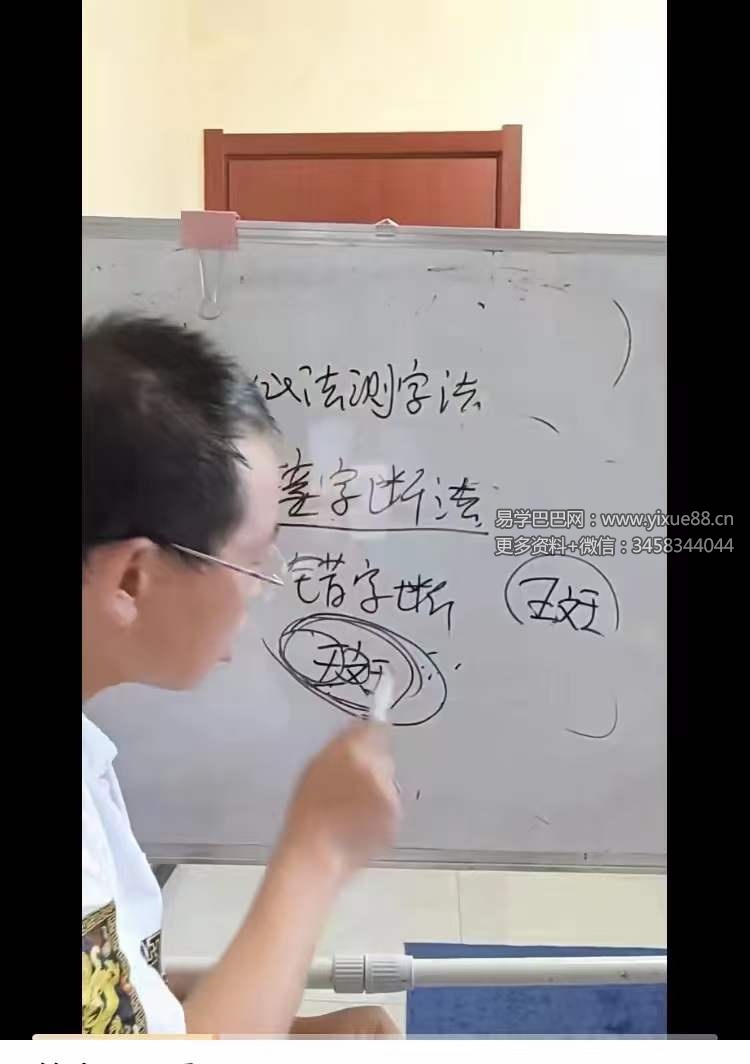 法测字法
字断法
易学巴巴网：www.yixue88.cn
更多资料+微信：3458344044
错字断
斑
斑